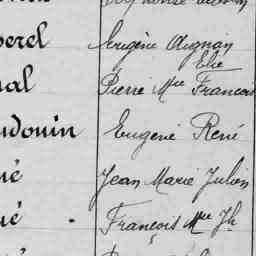 perel Eugène Aignan
Elie
nal Pierre Mie Francois
udouin Eugene René
né Jean Marie Julien
né . François Mie Jh